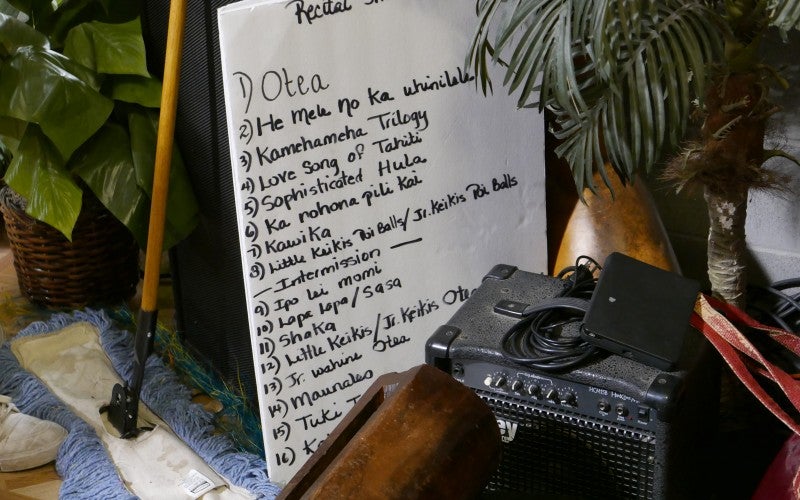 Recital
1) Otea
2) He Mele no ka uhinilele
3) Kamehameha Trilogy
4) Love Song of Tahiti
5) Sophisticated Hula
6) Ka nohona pili kai
7) Kawika
8) Little Keikis Poi Balls/Jr. Keikis Poi Balls
— Intermission —
9) Ipo lei momi
10) Lapa Lapa/Sasa
11) Shaka
12) Little Keikis/Jr. Keikis Otea
13) Jr. wahine Otea
14) Maunaleo
15) Tuki
16)